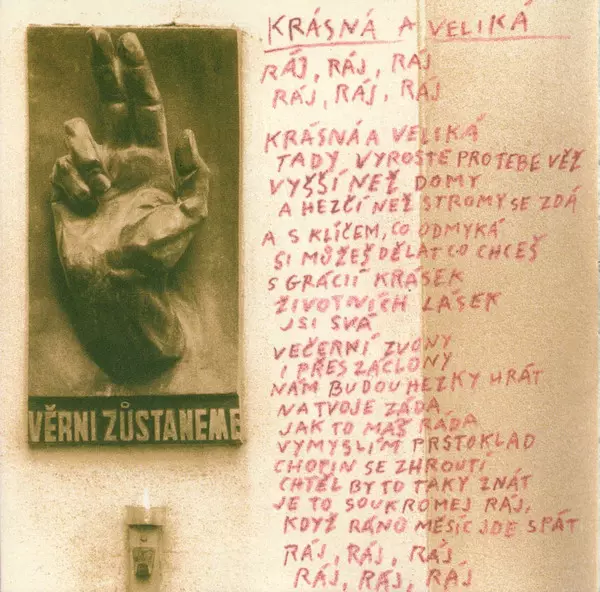 KRÁSNÁ A VELIKÁ
RÁJ, RÁJ, RÁJ
RÁJ, RÁJ, RÁJ
KRÁSNÁ A VELIKÁ
TADY VYROSTE PRO TEBE VĚŽ
VYŠŠÍ NEŽ DOMY
A HEZČÍ NEŽ STROMY SE ZDÁ
A S KLÍČEM, CO ODMYKÁ
SI MŮŽEŠ DĚLAT CO CHCEŠ
S GRÁCIÍ KRÁSEK
ŽIVOTNÍCH LÁSEK
JSI SVÁ
VEČERNÍ ZVONY
I PŘES ZÁCLONY
NÁM BUDOU HEZKY HRÁT
NA TVOJE ZÁDA
JAK TO MÁŠ RÁDA
VYMYSLÍM PRSTOKLAD
CHOPIN SE ZHROUTÍ
CHTĚL BY TO TAKY ZNÁT
JE TO SOUKROMEJ RÁJ,
KDYŽ RÁNO MĚSÍC JDE SPÁT
RÁJ, RÁJ, RÁJ
RÁJ, RÁJ, RÁJ
VĚRNI ZŮSTANEME